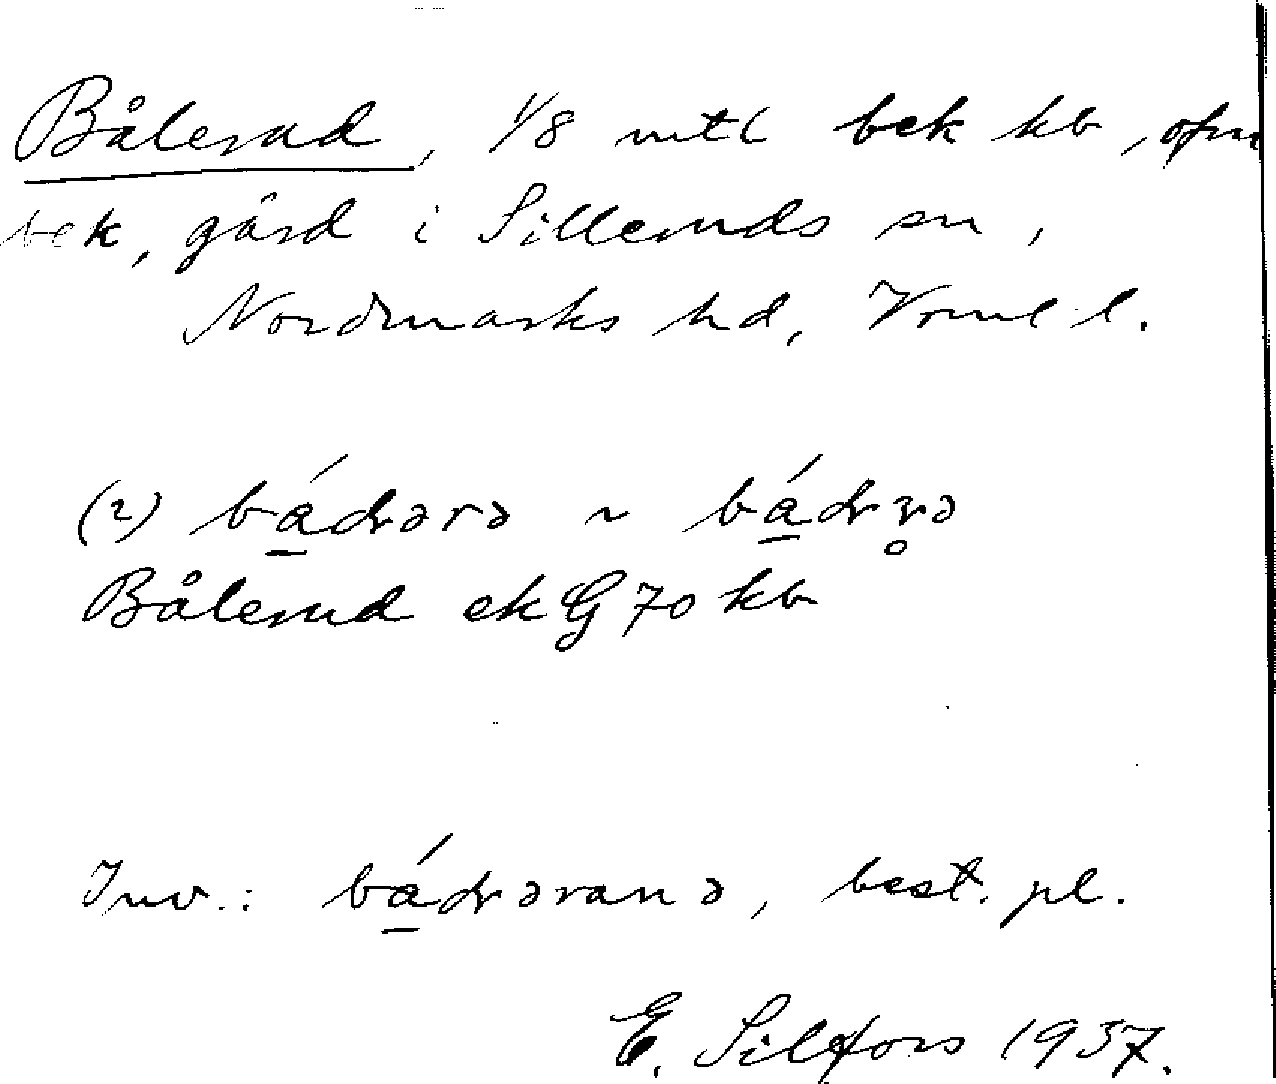 Bålerud, 1/8 mtl bek kb, ofm
bek, gård i Silleruds sn,
Nordmarks hd, Vrml l.
(2) bádrərə ~ bádrr̥ə
Bålerud ek G 70 kb
Inv.: bádrərana, best. pl.
E. Silfors 1937.